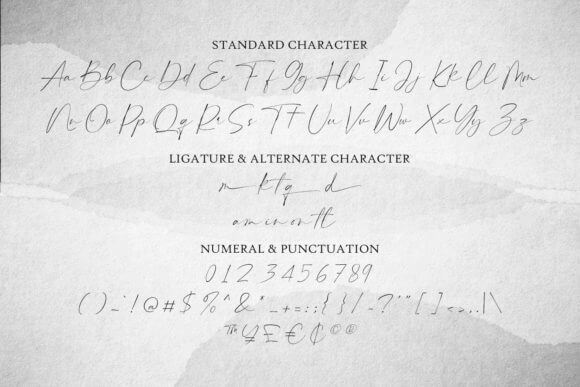 STANDARD CHARACTER
Aa Bb Cc Dd Ee Ff Gg Hh Ii Jj Kk Ll Mm
Nn Oo Pp Qq Rr Ss Tt Uu Vv Ww Xx Yy Zz
LIGATURE & ALTERNATE CHARACTER
m k t q d
am in on tt
NUMERAL & PUNCTUATION
0 1 2 3 4 5 6 7 8 9
( ) _ ` ! @ # $ % ^ & * _ + = : ; { } / - ? ' " [ ] < > , . | \
™ ¥ £ € ₵ © ®